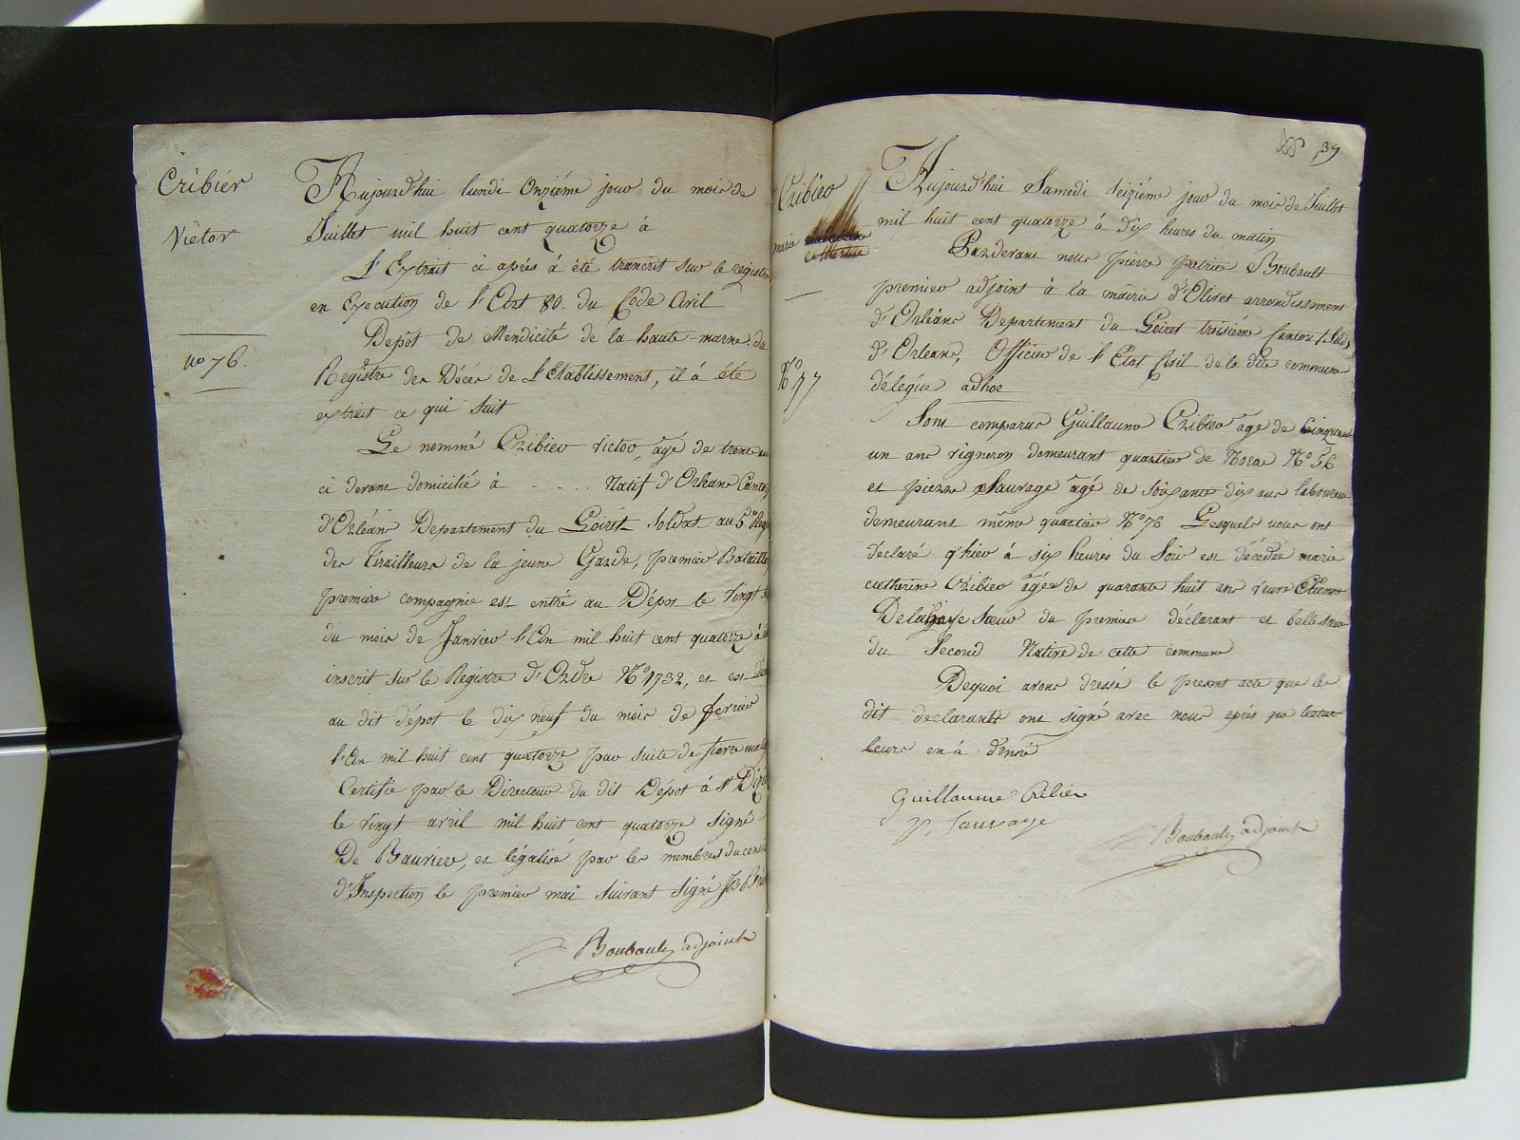 Cribier
Victor
n° 76.
Aujourd'hui lundi Onzième jour du mois de
Juillet mil huit cent quatorze à
L'Extrait ci après à été transcrit sur le registre
en Execution de l'Art 80. du Code Civil
Depot de Mendicité de la haute-marne. du
Registre des Décés de l'Etablissement, il à été
extrait ce qui suit
Le nommé Cribier Victor, agé de trente
ci devant domicilié à . . . . Natif d'Orleans Canton
d'Orléans Departement du Loiret Soldat au 6e
des Tirailleurs de la jeune Garde, premier Bataillon
premiere compagnie est entré au Dépot le Vingt
du mois de Janvier l'An mil huit cent quatorze à
inscrit sur le Registre d'Ordre N° 1732, et est
au dit dépot le dix neuf du mois de fevrier
l'An mil huit cent quatorze par suite de
Certifié par le Directeur du dit Dépot à St Dizier
le Vingt avril mil huit cent quatorze signé
De Baurier, et légalisé par les membres du conseil
d'Inspection le premier mai suivant signé
Boubault adjoint
39
Cribier
marie
catherine
N° 77
Aujourd'hui Samedi Seizième jour du mois de Juillet
mil huit cent quatorze à dix heures du matin
Pardevant nous pierre patrice Boubault
premier adjoint à la mairie d'Olivet arrondissement
d'Orléans Departement du Loiret troisième Canton
d'Orleans, Officier de l'Etat Civil de la dite commune
délégué adhoc
Sont comparus Guillaume Cribier agé de Cinquante
un ans Vigneron demeurant quartier de N° 56
et pierre Sauvage agé de soixante dix ans laboureur
demeurant même quartier N° 76 Lesquels nous ont
déclaré q'hier à six heures du Soir est décédée marie
catherine Cribier agée de quarante huit ans Veuve Etienne
Delahaye Sœur du premier déclarant et belle sœur
du Second Native de cette commune
Dequoi avons dressé le présent acte que les
dit declarants ont signé avec nous après que lecture
leurs en à donné
Guillaume Cribier
P. Sauvage
Boubault adjoint